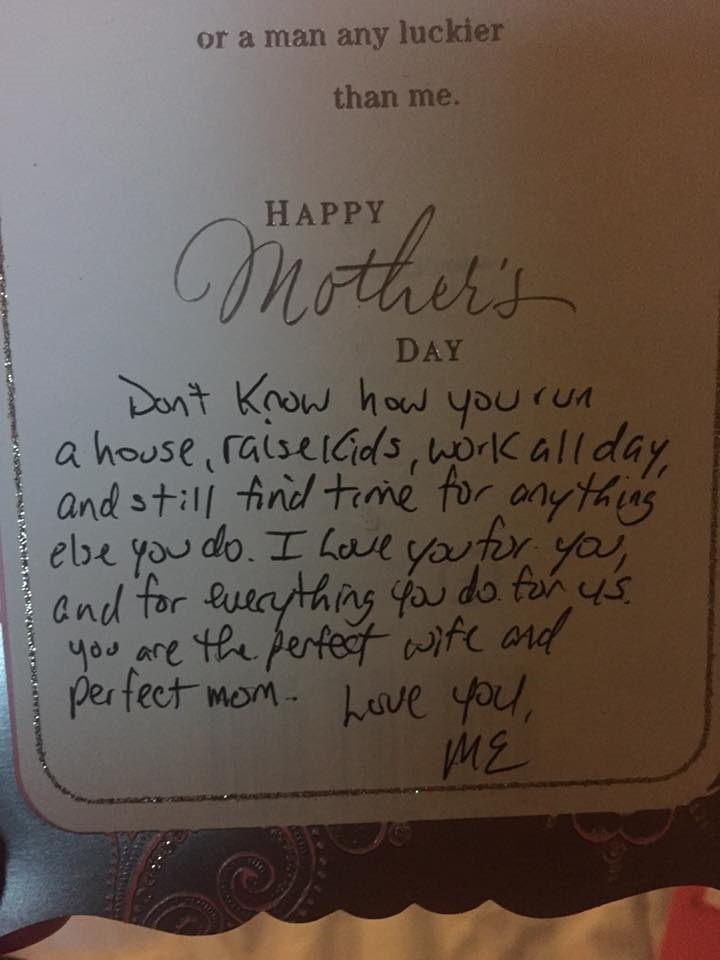 or a man any luckier
than me.
HAPPY
Mother's
DAY
Don't Know how you run
a house, raise kids, work all day,
and still find time for anything
else you do. I Love you for you,
and for everything you do for us.
you are the perfect wife and
perfect mom. Love you,
ME